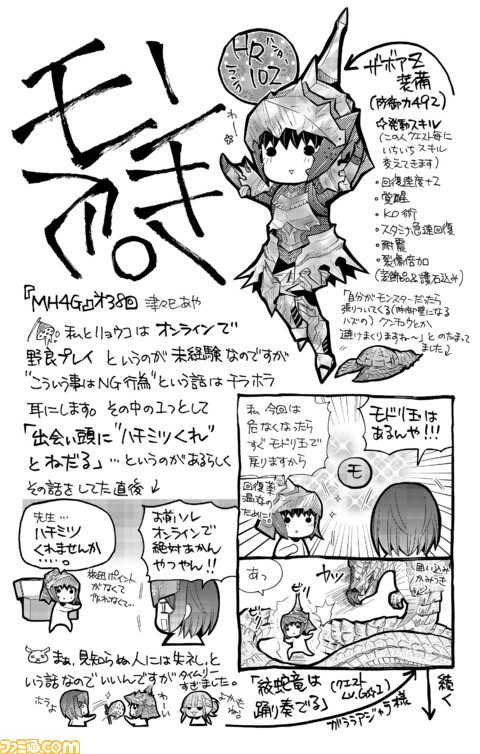 モンキア。
HR
102
わーい
ザボアZ
装備
(防御力492)
☆発動スキル
(この人クエスト毎に
いちいちスキル
変えてきます)
・回復速度+2
・覚醒
・KO術
・スタミナ急速回復
・耐震
・裂傷倍加
(装飾品&護石込み)
「自分がモンスターだったら
張りついてくる(防御壁になる
ハズの)クンチュウとか
避けまくりますね〜」とのたまって
ました↓
『MH4G』第38回 津々巳あや
私とリョウコはオンラインで
野良プレイ というのが未経験なのですが
“こういう事はNG行為”という話はチラホラ
耳にします。その中の1つとして
「出会い頭に“ハチミツくれ”
とねだる」…というのがあるらしく
その話をしてた直後↓
先生…
ハチミツ
くれませんか
….。
旅団ポイント
がなくて
作れなくて…
お前ソレ
オンラインで
絶対あかん
やつやん!!
まぁ、見知らぬ人には失礼、と
いう話なのでいいんですがタイムリー
すぎました。
ホラよ
わーい
よかった
ね。
私、今回は
危なくなったら
すぐモドリ玉で
戻りますから
回復薬
温存の
ために!
モドリ玉は
あるんや!!!
モ
あっ
ビリ
ビリ
ヤッ
囲い込み
かみつき
「絞蛇竜は
踊り奏でる」
(クエスト
Lv.G級1)
ガララアジャラ様
続く
ファミ通.com